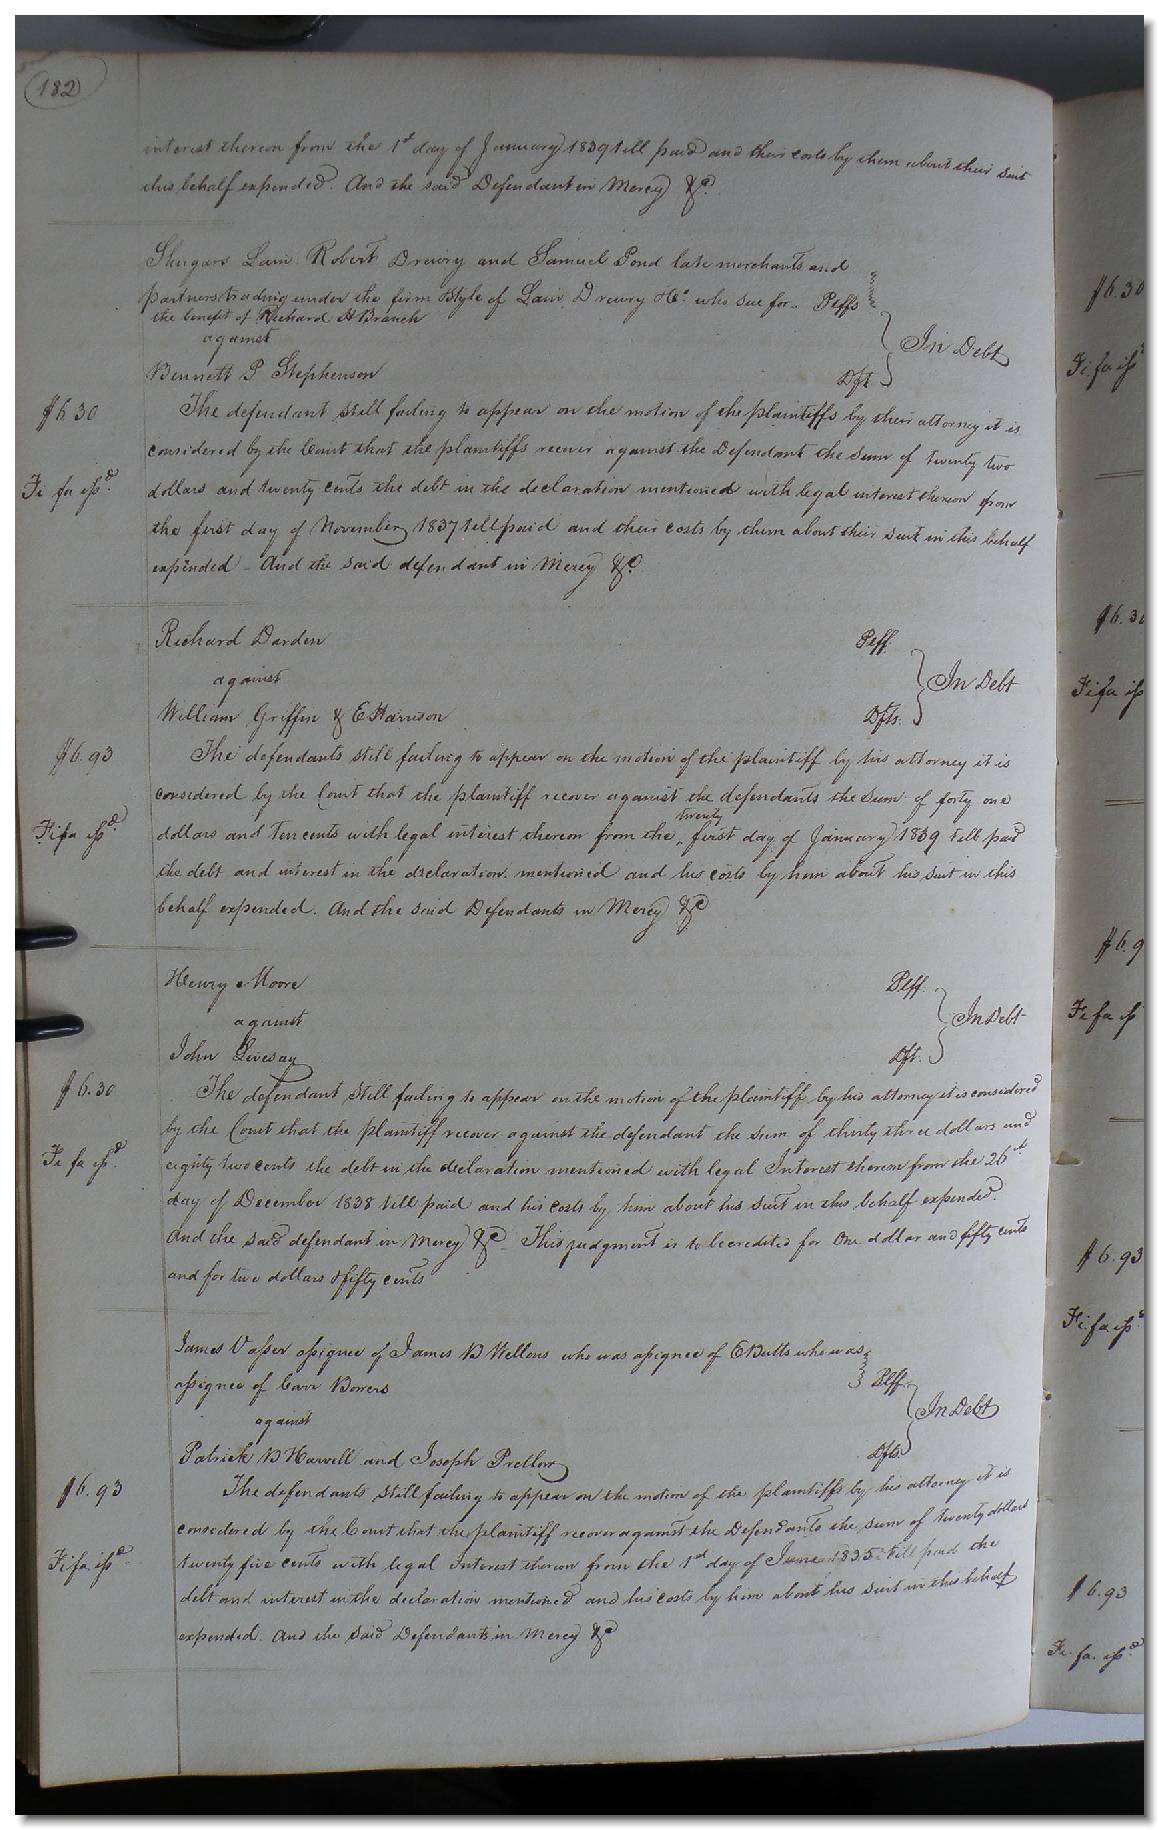 182
interest thereon from the 1st day of January 1839 till paid and their costs by them about their suit
this behalf expended. And the said Defendant in Mercy &c.
Robert Drewry and Samuel Pond late merchants and
partners trading under the firm & Style of Lain Drewry & Co. who sue for Plffs
the benefit of Richard H Branch
against
In Debt
Bennett P Stephenson Dft
$6.30
The defendant still failing to appear on the motion of the plaintiffs by their attorney it is
considered by the Court that the plaintiffs recover against the Defendant the sum of twenty two
Fi fa issd.
dollars and twenty cents the debt in the declaration mentioned with legal interest thereon from
the first day of November 1837 till paid and their costs by them about their suit in this behalf
expended - And the said defendant in Mercy &c.
Richard Darden Plff.
against
In Debt
William Griffin & E Harrison Dfts.
$6.93
The defendants still failing to appear on the motion of the plaintiff by his attorney it is
considered by the Court that the plaintiff recover against the defendants the sum of forty one
twenty
Fi fa issd.
dollars and Ten cents with legal interest thereon from the ^ first day of January 1839 till paid
the debt and interest in the declaration mentioned and his costs by him about his suit in this
behalf expended. And the said Defendants in Mercy &c
Henry Moore Plff.
against
In Debt
John Livesay Dft.
$6.30
The defendant still failing to appear on the motion of the plaintiff by his attorney it is considered
by the Court that the plaintiff recover against the defendant the sum of thirty three dollars and
Fi fa issd.
eighty two cents the debt in the declaration mentioned with legal Interest thereon from the 26th
day of December 1838 till paid and his costs by him about his suit in this behalf expended.
And the said defendant in Mercy &c - This judgment is to be credited for One dollar and fifty cents
and for two dollars & fifty cents
James Vasser assignee of James B Wellons who was assignee of E Butts who was
assignee of Carr Bowers Plff.
against
In Debt
Patrick B Harvell and Joseph Pretlow Dfts.
$6.93
The defendants still failing to appear on the motion of the plaintiffs by his attorney it is
considered by the Court that the plaintiff recover against the Defendants the sum of twenty dollars
Fi fa issd.
twenty five cents with legal Interest thereon from the 1st day of June 1835 till paid the
debt and interest in the declaration mentioned and his costs by him about his suit in this behalf
expended. And the said Defendants in Mercy &c
$6.30
Fi. fa iss
$6.30
Fi fa iss
$6.9
Fi fa iss
$6.93
Fi. fa issd.
$6.93
Fi. fa. issd.